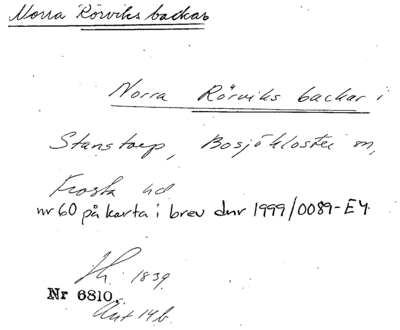 Norra Rörviks backar
Norra Rörviks backar i
Stanstorp, Bosjökloster sn,
Frosta hd
nr 60 på karta i brev dnr 1999/0089-E4
1839.
Nr 6810.
Ant 14 b.